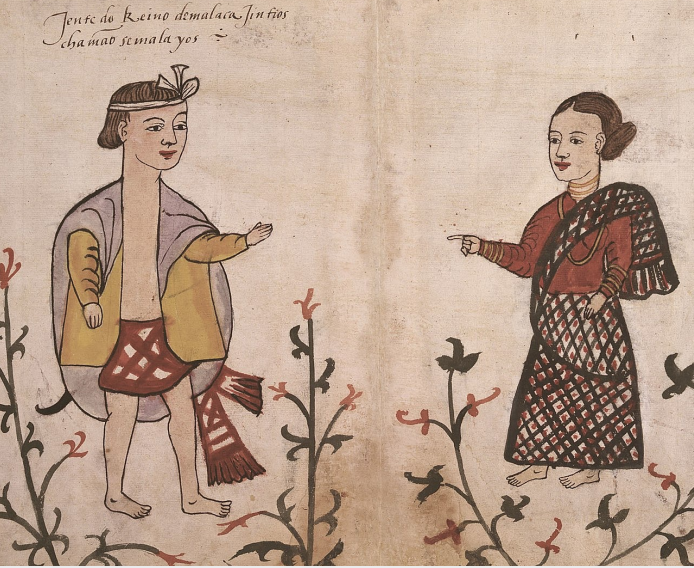 Jente do Reino de malaca Jintios
chamaõ se mala yos